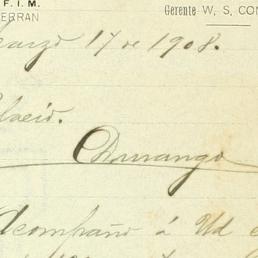 F. I. M.
ERRAN
Gerente W. S. CON
Marzo 17 de 1908.
Durango
Acompaño á Ud